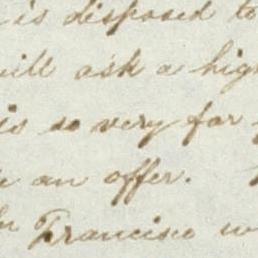 is disposed to
will ask a high
is so very far
an offer.
Francisco